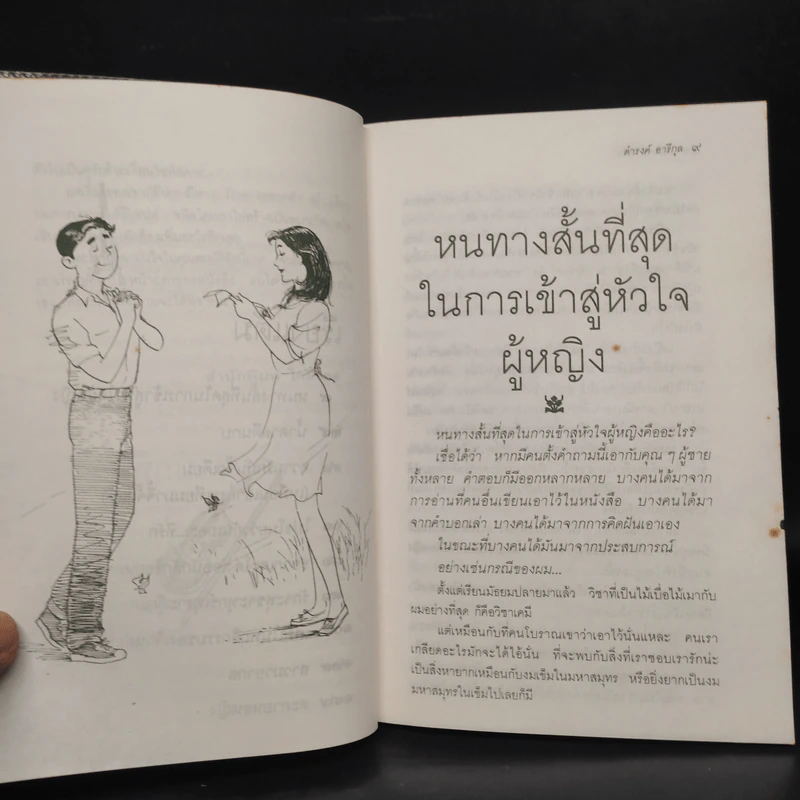 ดำรงค์ อารีกุล ๙
หนทางสั้นที่สุด
ในการเข้าสู่หัวใจ
ผู้หญิง
หนทางสั้นที่สุดในการเข้าสู่หัวใจผู้หญิงคืออะไร?
เชื่อได้ว่า หากมีคนตั้งคำถามนี้เอากับคุณ ๆ ผู้ชาย
ทั้งหลาย คำตอบก็มีออกหลากหลาย บางคนได้มาจาก
การอ่านที่คนอื่นเขียนเอาไว้ในหนังสือ บางคนได้มา
จากคำบอกเล่า บางคนได้มาจากการคิดฝันเอาเอง
ในขณะที่บางคนได้มันมาจากประสบการณ์
อย่างเช่นกรณีของผม...
ตั้งแต่เรียนมัธยมปลายมาแล้ว วิชาที่เป็นไม้เบื่อไม้เมากับ
ผมอย่างที่สุด ก็คือวิชาเคมี
แต่เหมือนกับที่คนโบราณเขาว่าเอาไว้นั่นแหละ คนเรา
เกลียดอะไรมักจะได้ไอ้นั่น ที่จะพบกับสิ่งที่เราชอบเรารักน่ะ
เป็นสิ่งหายากเหมือนกับงมเข็มในมหาสมุทร หรือยิ่งยากเป็นงม
มหาสมุทรในเข็มไปเลยก็มี